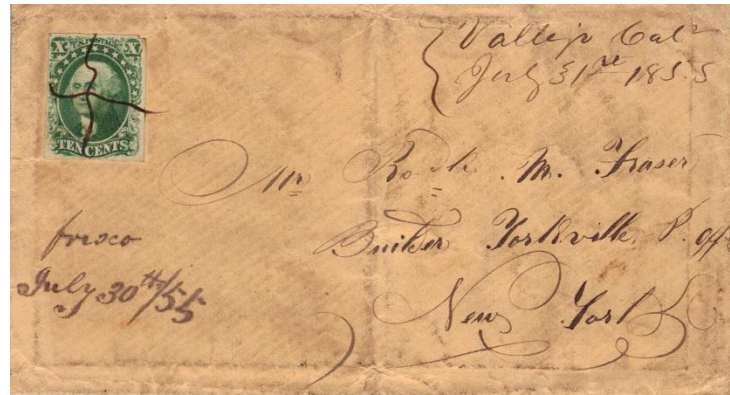 X U.S. POSTAGE X
TEN CENTS
Vallejo Cal
July 31st 1855
Mr M. Fraser
Builder Yorkville, P. Off
New York
frisco
July 30th/55